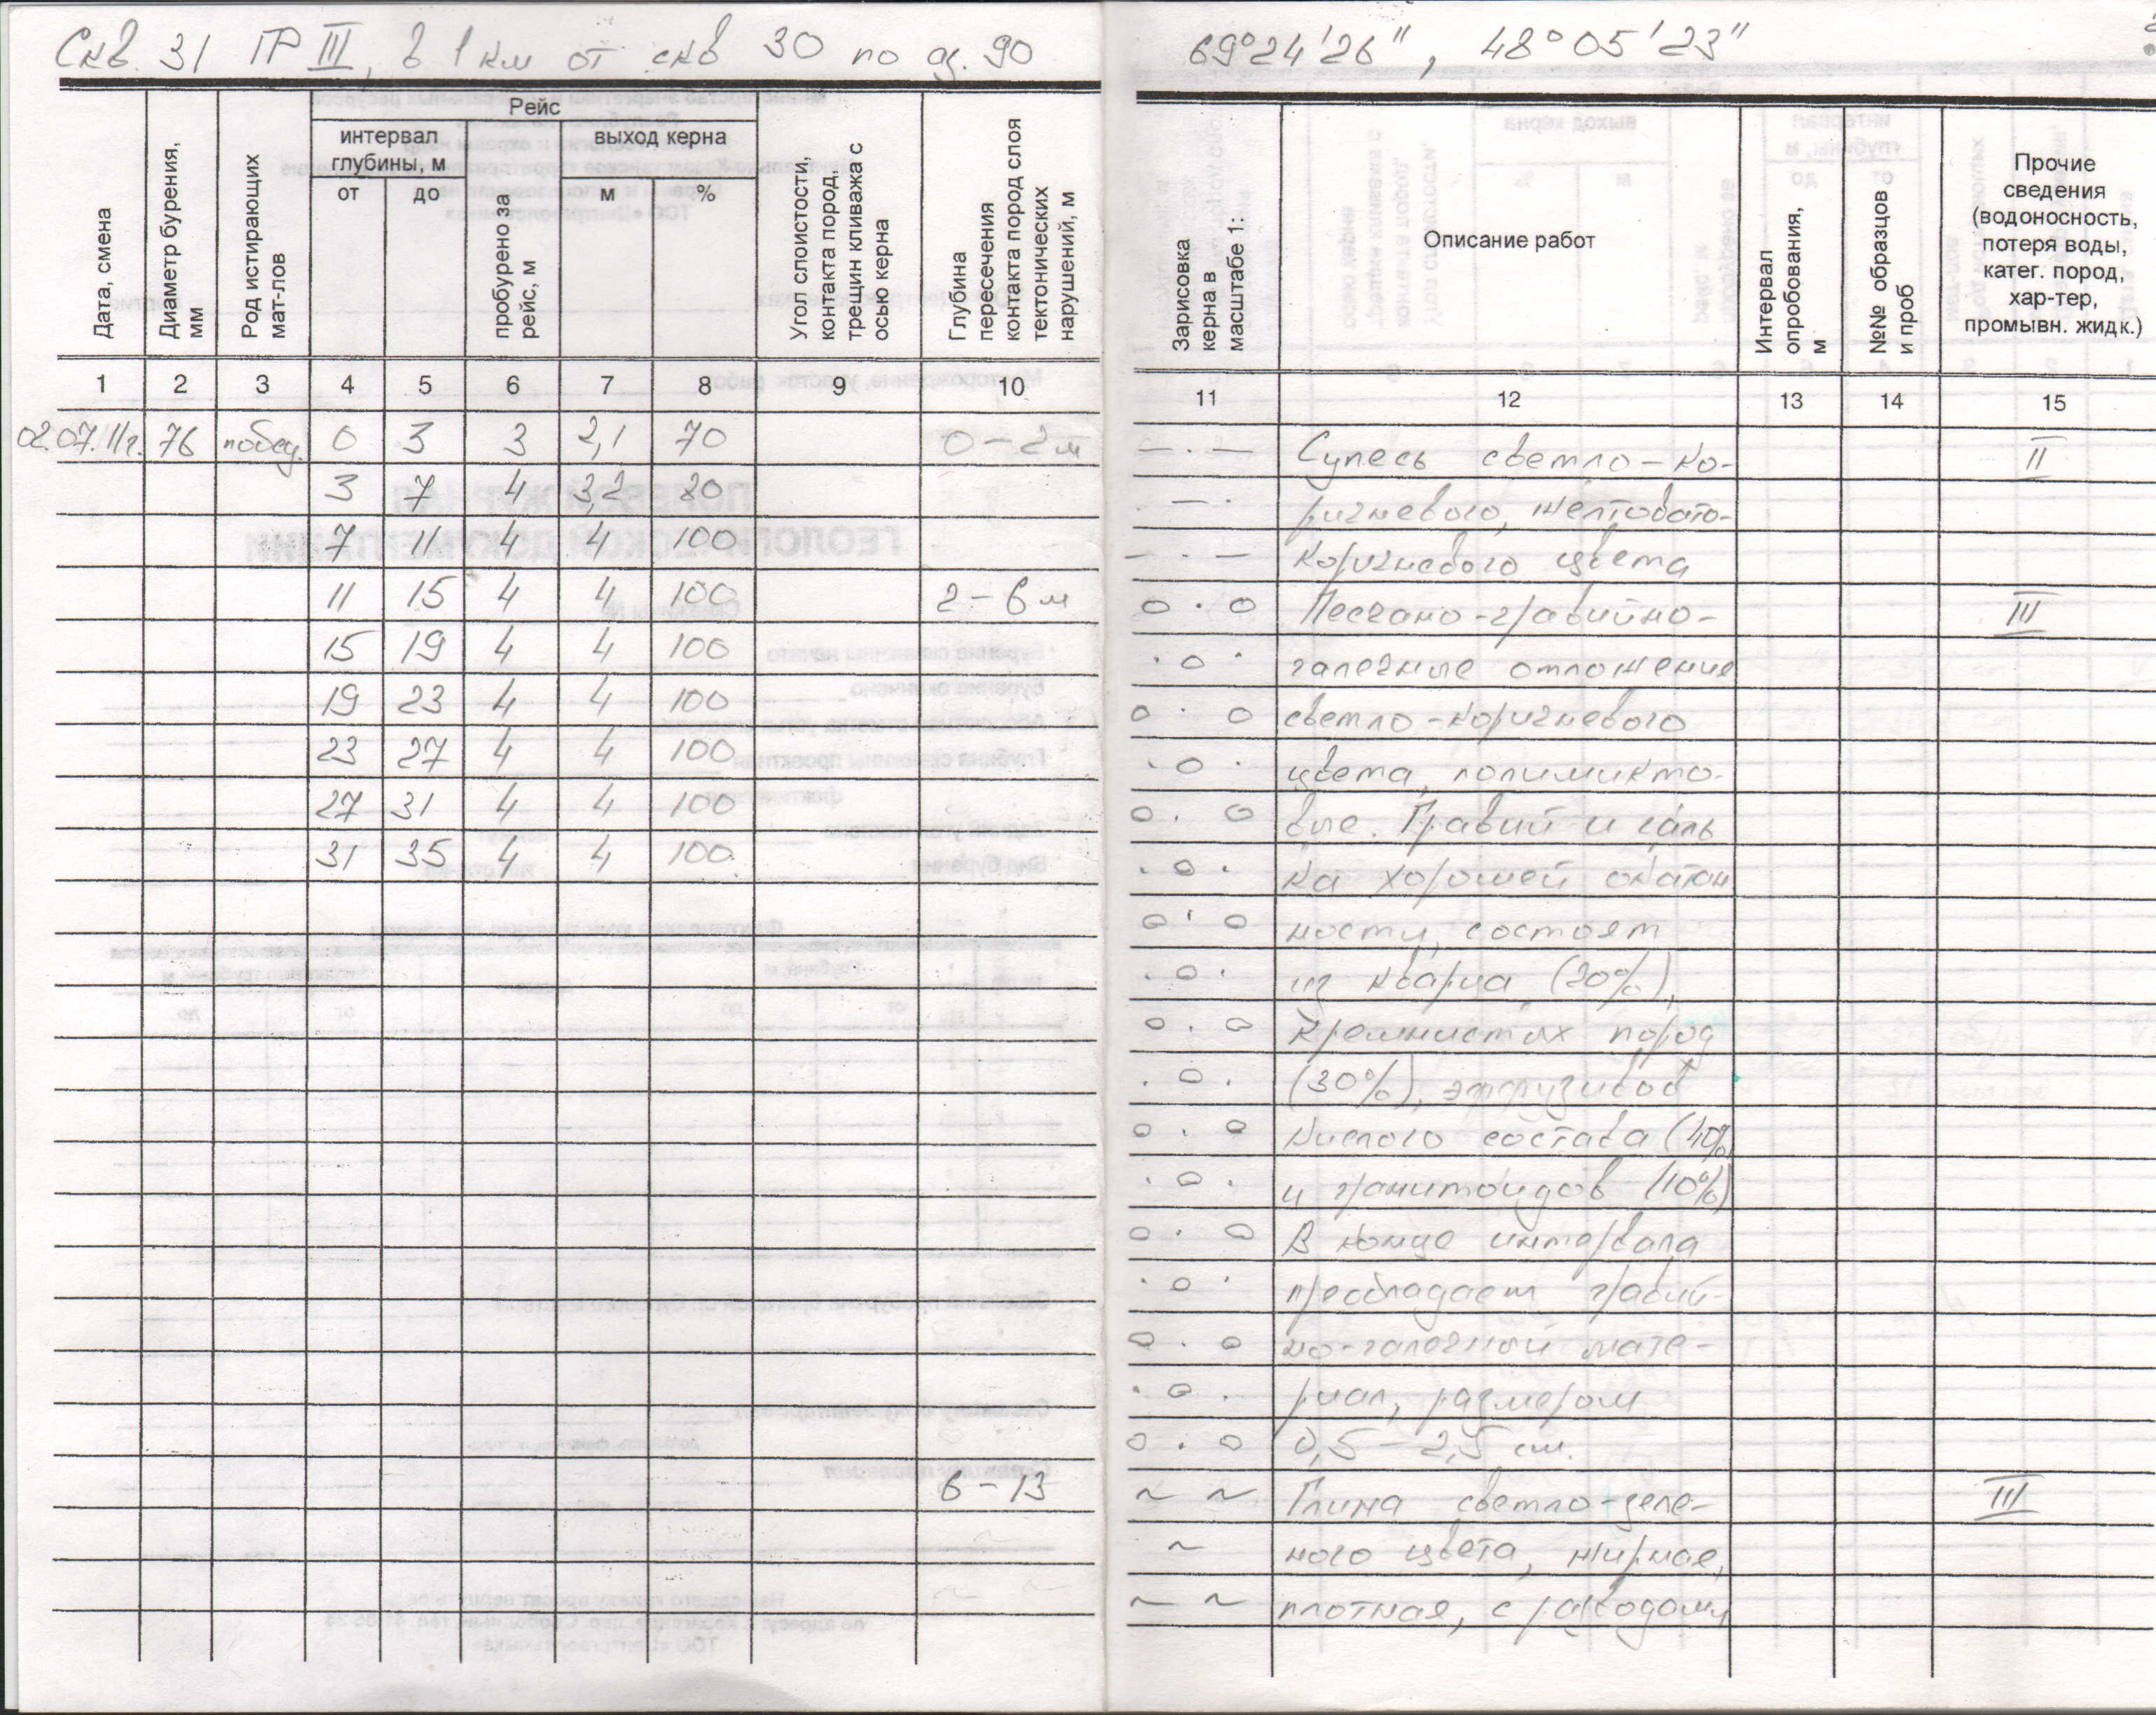 Скв. 31 ГР III, в 1 км от скв 30 по аз. 90
69°24'26", 48°05'23"
Дата, смена
Диаметр бурения, мм
Род истирающих мат-лов
Рейс
интервал глубины, м
выход керна
от до
пробурено за рейс, м
м %
Угол слоистости, контакта пород, трещин кливажа с осью керна
Глубина пересечения контакта пород слоя тектонических нарушений, м
Зарисовка керна в масштабе 1:
Описание работ
Интервал опробования, м
№№ образцов и проб
Прочие
сведения
(водоносность,
потеря воды,
катег. пород,
хар-тер,
промывн. жидк.)
1 2 3 4 5 6 7 8 9 10 11 12 13 14 15
02.07.11г. 76 побед. 0 3 3 2,1 70 0-2м Супесь светло-ко- II
3 7 4 3,2 80 ричневого, желтовато-
7 11 4 4 100 коричневого цвета
11 15 4 4 100 2-6м Песчано-гравийно- III
15 19 4 4 100 галечные отложение
19 23 4 4 100 светло-коричневого
23 27 4 4 100 цвета, полимикто-
27 31 4 4 100 вые. Гравий и галь
31 35 4 4 100 ка хорошей окатан
ности, состоят
из кварца (20%),
кремнистых пород
(30%), эффузивов
кислого состава (40%)
и гранитоидов (10%)
В конце интервала
преобладает гравий-
но-галечный мате-
риал, размером
0,5-2,5 см.
6-13 Глина светло-зеле- III
ного цвета, жирная,
плотная, с разводами